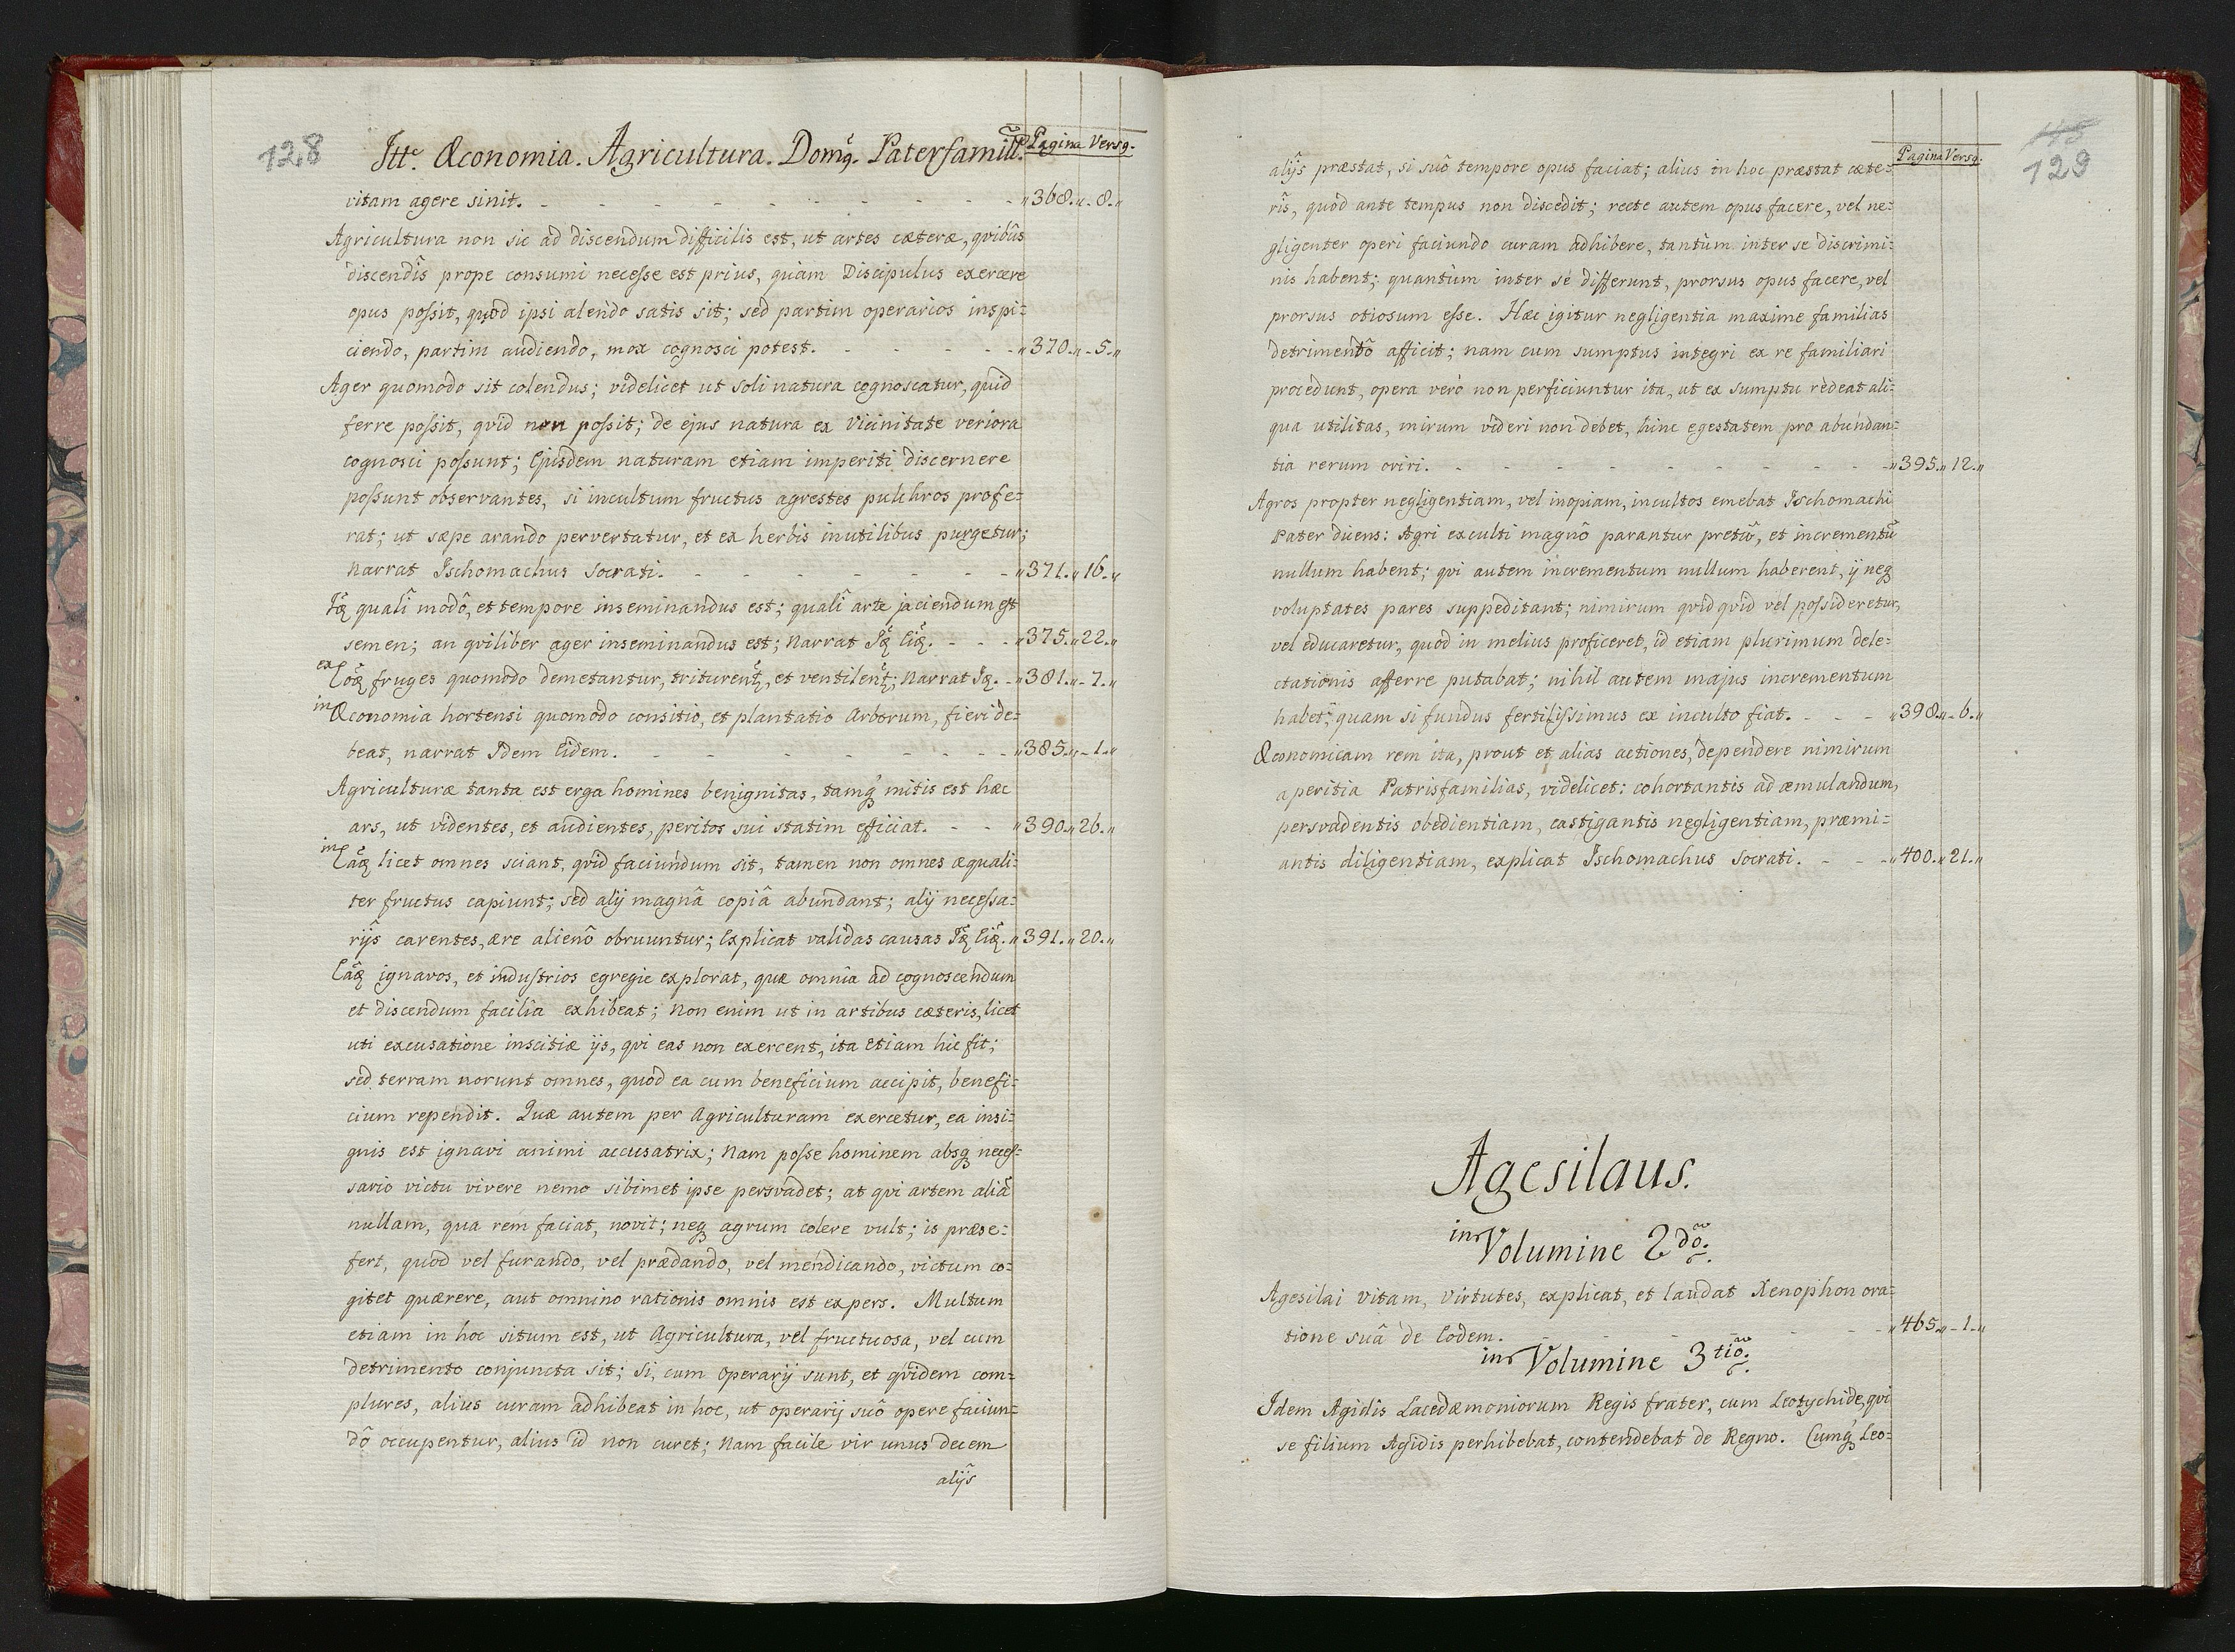 128
Ittē Œconomia. Agricultura. Domq̃. Paterfamill. Pagina Versq.
vitam agere sinit. - - - - - - - - - „368.„-8.„
Agricultura non sic ad discendum difficilis est, ut artes cæteræ, qvibûs
discendîs prope consumi necesse est prius, quàm Discipulus exercere
opus possit, quod ipsi alendo satis sit; sed partim operarios inspi=
ciendo, partim audiendo, mox cognosci potest. - - - - „370.„-5.„
Ager quomodo sit colendus; videlicet ut soli natura cognoscatur, quid
ferre possit, qvid non possit; de ejus natura ex Vicinitate veriora
cognosci possunt; Ejusdem naturam etiam imperiti discernere
possunt observantes, si incultum fructus agrestes pulchros profe=
rat; ut sæpe arando pervertatur, et ex herbis inutilibus purgetur;
Narrat Ischomachus Socrati. - - - - - - - „371.„16.„
Iq̃ qualî modô, et tempore inseminandus est; qualî arte jaciendum est
semen; an qviliber ager inseminandus est; Narrat Iq̃ Eiq̃. - - - „375.„22.„
ex Eôq̃ fruges quomodo demetantur, triturenq̃, et ventilenq̃; Narrat Iq̃. - „381.„-7.„
in Œconomia hortensi quomodo consitio, et plantatio Arborum, fieri de=
beat, narrat Idem Eidem. - - - - - - - - „385.„-1.„
Agriculturæ tanta est erga homines benignitas, tamq̃ mitis est hæc
ars, ut videntes, et audientes, peritos sui statim efficiat. - - „390.„26.„
in Eâq̃ licet omnes sciant, qvid faciundum sit, tamen non omnes æquali=
ter fructus capiunt; sed alij magnâ copiâ abundant; alij necessa=
rijs carentes, ære alienô obruuntur; Explicat validas causas Iq̃ Eiq̃. „391.„20.„
Eâq̃ ignavos, et industrios egregie explorat, quæ omnia ad cognoscendum
et discendum facilia exhibeat; Non enim ut in artibus cæteris, licet
uti excusatione inscitiæ ijs, qvi eas non exercent, ita etiam hic fit;
sed terram norunt omnes, quod ea cum beneficium accipit, benefi=
cium rependit. Quæ autem per Agriculturam exercetur, ea insi=
gnis est ignavi animi accusatrix; Nam posse hominem absq̃ neces=
sario victu vivere nemo sibimet ipse persvadet; at qvi artem aliã
nullam, qua rem faciat, novit; neq̃ agrum colere vult; is præse=
fert, quod vel furando, vel prædando, vel mendicando, victum co=
gitet quærere, aut omnino rationis omnis est expers. Multum
etiam in hoc situm est, ut Agricultura, vel fructuosa, vel cum
detrimento conjuncta sit; si, cum operarij sunt, et qvidem com=
plures, alius curam adhibeat in hoc, ut operarij suô opere faciun=
dô occupentur, alius id non curet; Nam facile vir unus decem
alijs
129
Pagina Versq.
alijs præstat, si suô tempore opus faciat; alius in hoc præstat cæte=
rîs, quòd ante tempus non discedit; recte autem opus facere, vel ne=
gligenter operi faciundo curam adhibere, tantùm inter se discrimi=
nis habent; quantùm inter se differunt, prorsus opus facere, vel
prorsus otiosum esse. Hæc igitur negligentia maxime familias
detrimentô afficit; nam cum sumptus integri ex re familiari
procedunt, opera verò non perficiuntur ita, ut ex sumptu redeat ali=
qua utilitas, mirum videri non debet, hinc egestatem pro abundan=
tia rerum oriri. - - - - - - - - - - „395.„12.„
Agros propter negligentiam, vel inopiam, incultos emebat Ischomachi
Pater dicens: Agri exculti magnô parantur pretiô, et incrementũ
nullum habent; qvi autem incrementum nullum haberent, ij neq̃
voluptates pares suppeditant; nimirum qvidqvid vel possideretur,
vel educaretur, quod in melius proficeret, id etiam plurimum dele=
ctationis afferre putabat; nihil autem majus incrementum
habet; quam si fundus fertilissimus ex inculto fiat. - - - „398.„-6.„
Œconomicam rem ita, prout et alias actiones, dependere nimirum
a peritia Patrisfamilias, videlicet: cohortantis ad æmulandum,
persvadentis obedientiam, castigantis negligentiam, præmi=
antis diligentiam, explicat Ischomachus Socrati. - - - „400.„21.„
Agesilaus.
in Volumine 2dõ.
Agesilai vitam, virtutes, explicat, et laudat Xenophon ora=
tione suâ de Eodem. - - - - - - „465.„-1.„
in Volumine 3tiõ.
Idem Agidis Lacedæmoniorum Regis frater, cum Leotychide, qvi
se filium Agidis perhibebat, contendebat de Regno. Cumq̃ Leo=